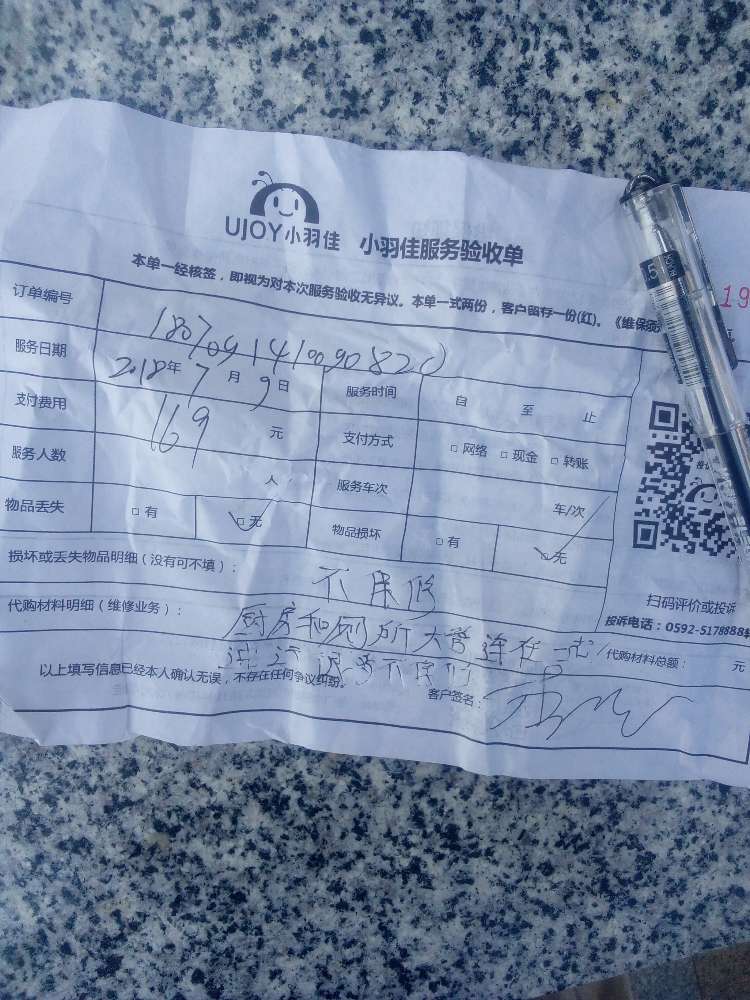 UJOY小羽佳 小羽佳服务验收单
19
本单一经核签，即视为对本次服务验收无异议。本单一式两份，客户留存一份(红)。《维保
订单编号 1807091410090820
服务日期 2018年7月9日 服务时间 自 至 止
支付费用 169 元 支付方式 □ 网络 □ 现金 □ 转账
服务人数 人 服务车次 车/次
物品丢失 □ 有 □ 无 物品损坏 □ 有 □ 无
损坏或丢失物品明细（没有可不填）： 不用修
扫码评价或投诉
投诉电话：0592-5178888
代购材料明细（维修业务）： 厨房和厕所大管连在一起 代购材料总额： 元
以上填写信息已经本人确认无误，不存在任何争议纠纷。 客户签名：